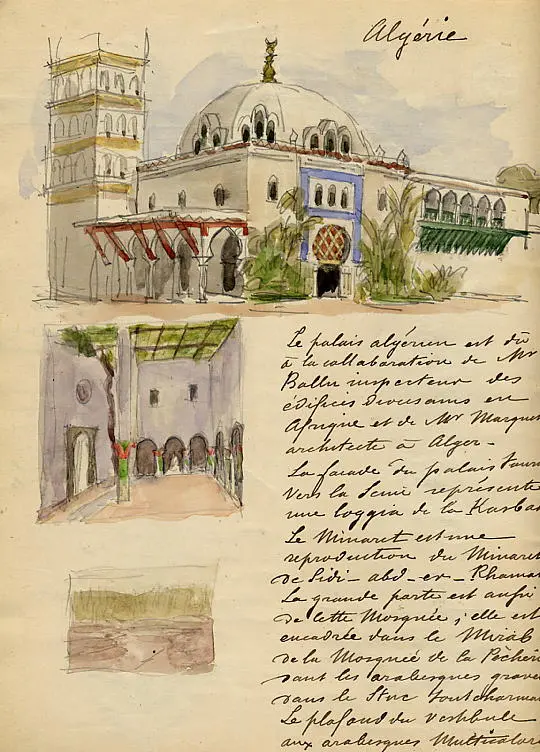 Algérie
Le palais algérien est dû
à la collaboration de Mr
Ballu inspecteur des
édifices diocésains en
Afrique et de Mr Marquet
architecte à Alger -
La façade du palais
Vers la Seine représente
une loggia de la Kasba
Le Minaret est une
reproduction du Minaret
de Sidi - abd - er - Rhaman
La grande porte est aussi
de cette Mosquée ; elle est
encadrée dans le Mirab
de la Mosquée de la Pêcherie
dont les arabesques gravées
dans le Stuc sont
Le plafond du vestibule
aux arabesques Multicolores